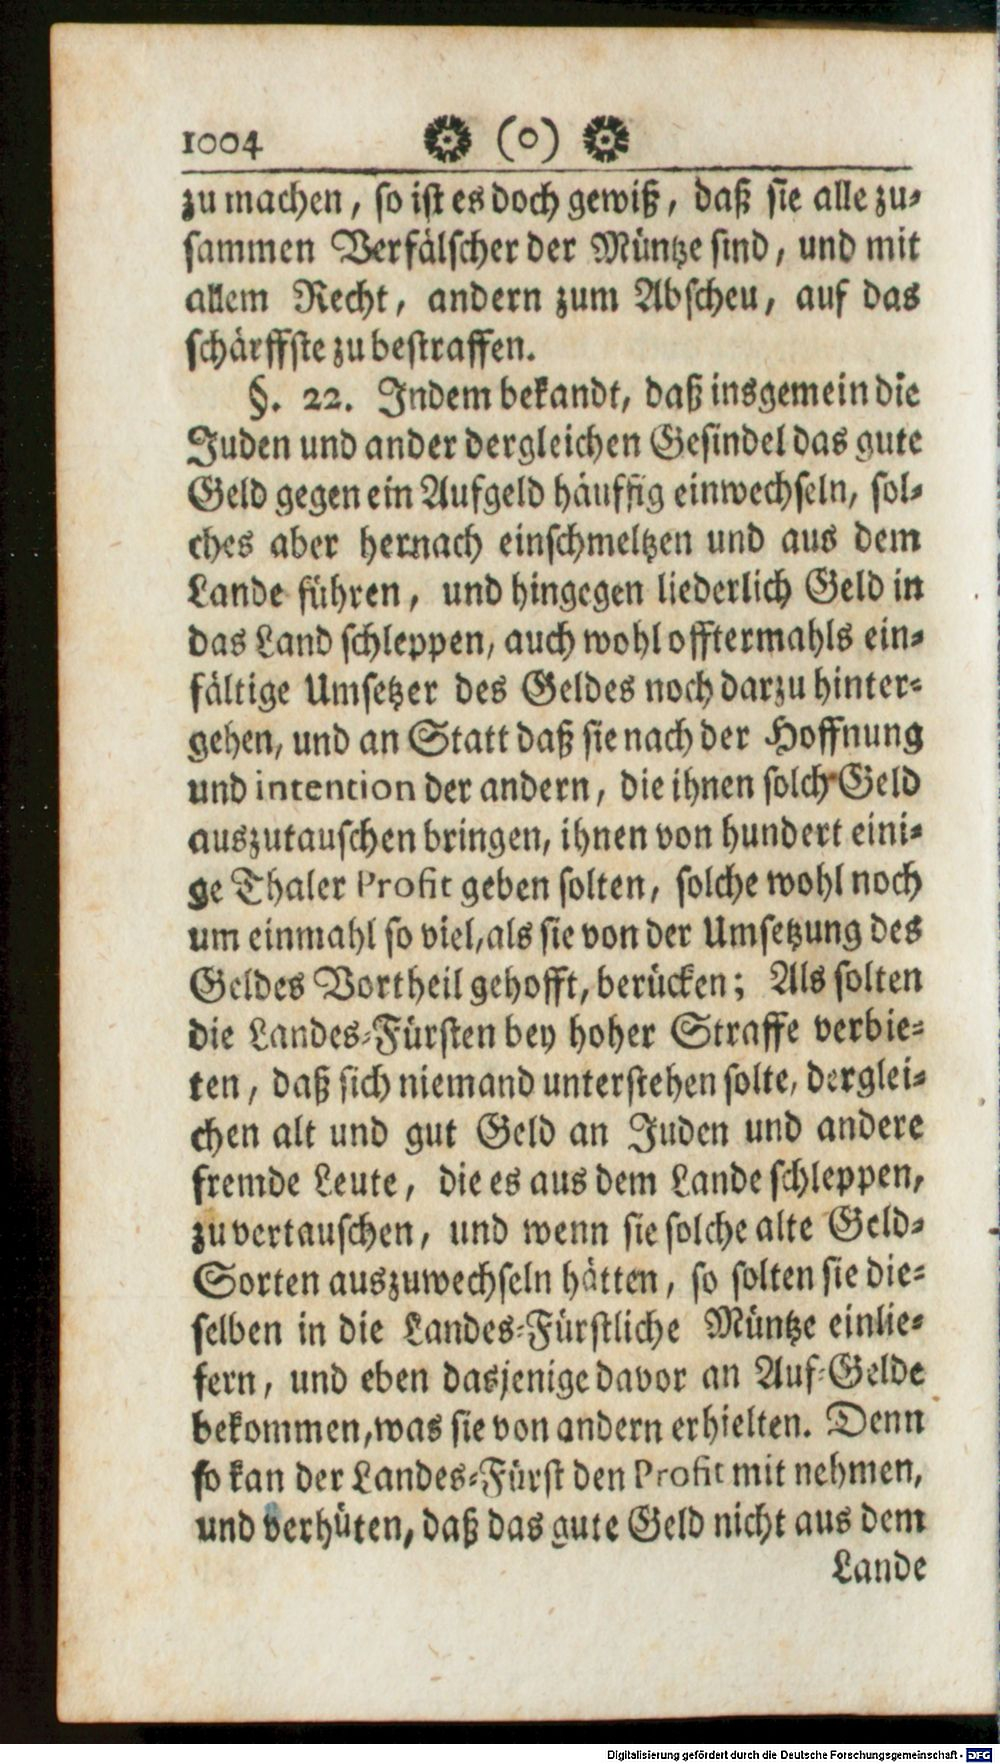 1004 (o)
zu machen, so ist es doch gewiß, daß sie alle zu-
sammen Verfälscher der Müntze sind, und mit
allem Recht, andern zum Abscheu, auf das
schärffste zu bestraffen.
§. 22. Indem bekandt, daß insgemein die
Juden und ander dergleichen Gesindel das gute
Geld gegen ein Aufgeld häuffig einwechseln, sol-
ches aber hernach einschmeltzen und aus dem
Lande führen, und hingegen liederlich Geld in
das Land schleppen, auch wohl offtermahls ein-
fältige Umsetzer des Geldes noch darzu hinter-
gehen, und an Statt daß sie nach der Hoffnung
und intention der andern, die ihnen solch Geld
auszutauschen bringen, ihnen von hundert eini-
ge Thaler Profit geben solten, solche wohl noch
um einmahl so viel, als sie von der Umsetzung des
Geldes Vortheil gehofft, berücken; Als solten
die Landes-Fürsten bey hoher Straffe verbie-
ten, daß sich niemand unterstehen solte, derglei-
chen alt und gut Geld an Juden und andere
fremde Leute, die es aus dem Lande schleppen,
zu vertauschen, und wenn sie solche alte Geld-
Sorten auszuwechseln hätten, so solten sie die-
selben in die Landes-Fürstliche Müntze einlie-
fern, und eben dasjenige davor an Auf-Gelde
bekommen, was sie von andern erhielten. Denn
so kan der Landes-Fürst den Profit mit nehmen,
und verhüten, daß das gute Geld nicht aus dem
Lande
Digitalisierung gefördert durch die Deutsche Forschungsgemeinschaft - DFG